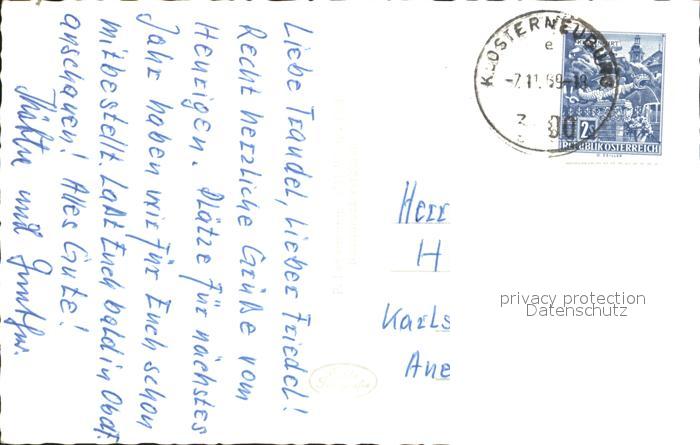 Liebe Traudel, lieber Friedel!
Recht herzliche Grüße vom
Heurigen. Plätze für nächstes
Jahr haben wir für Euch schon
mitbestellt. Laßt Euch bald in
anschauen! Alles Gute!
und
KLOSTERNEUBURG
e
-7.11.69-18
2S
REPUBLIK ÖSTERREICH
Herr
H
Karls
Ane
privacy protection
Datenschutz